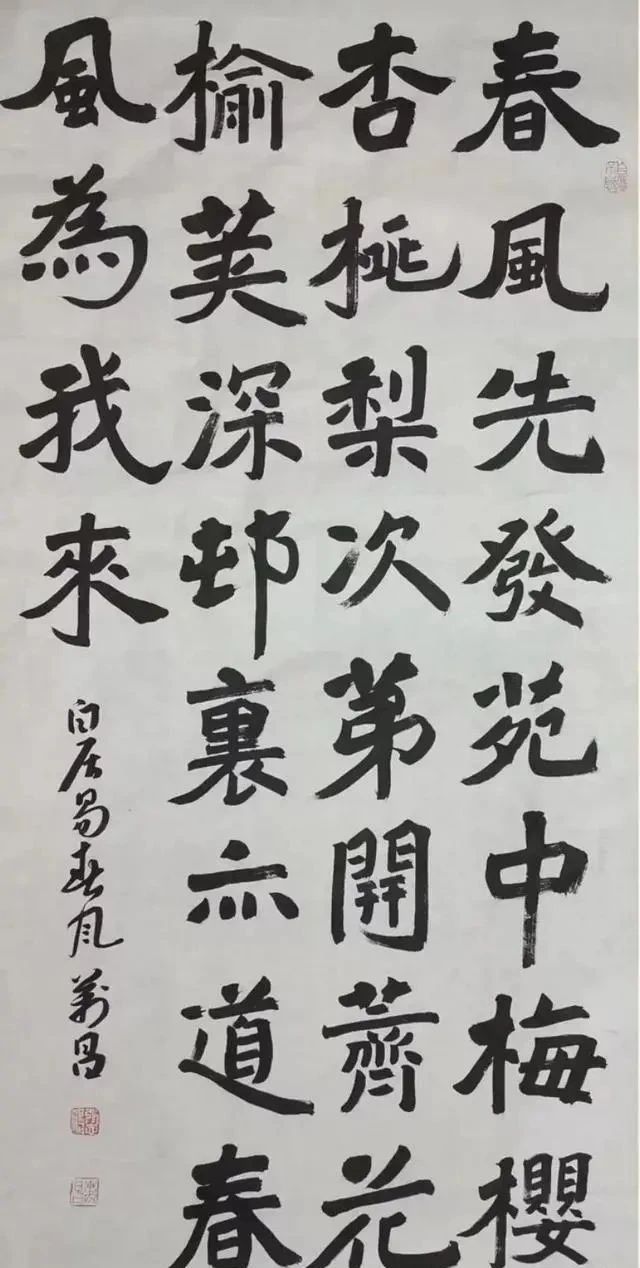 春風先發苑中梅櫻
杏桃梨次第開薺花
榆莢深邨裏亦道春
風為我來
白居易春風萬昌